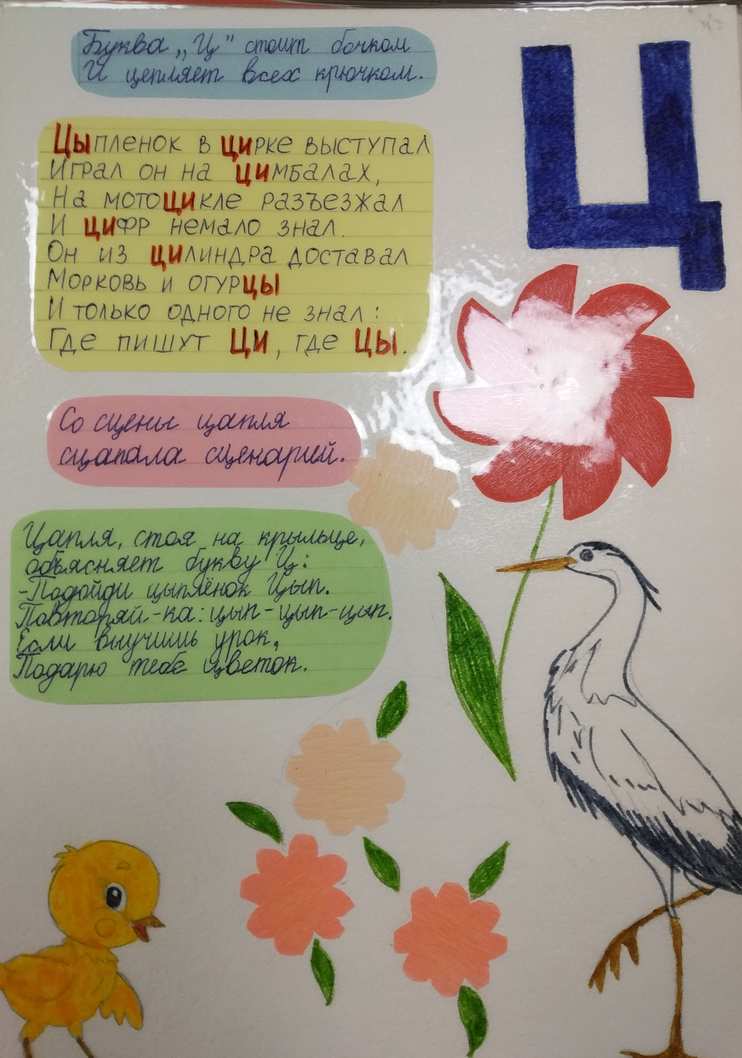 Буква „Ц" стоит бочком
И цепляет всех крючком.
Ц
Цыпленок в цирке выступал
Играл он на цимбалах,
На мотоцикле разъезжал
И цифр немало знал.
Он из цилиндра доставал
Морковь и огурцы
И только одного не знал:
Где пишут ци, где цы.
Со сцены цапля
сцапала сценарией.
Цапля, стоя на крыльце,
объясняет букву Ц:
-Подойди цыплёнок Цып.
Повторяй-ка: цып-цып-цып.
Если выучишь урок,
Подарю тебе цветок.